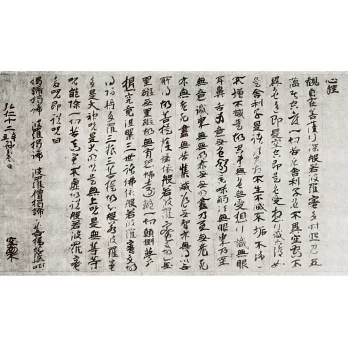 心經
觀自在菩薩行深般若波羅蜜多時照見五
蘊皆空度一切苦厄舍利子色不異空空不
異色色即是空空即是色受想行識亦復如
是舍利子是諸法空相不生不滅不垢不淨
不增不減是故空中無色無受想行識無眼
耳鼻舌身意無色聲香味觸法無眼界乃至
無意識界無無明亦無無明盡乃至無老死
亦無老死盡無苦集滅道無智亦無得以無
所得故菩提薩埵依般若波羅蜜多故心無
罣礙無罣礙故無有恐怖遠離一切顛倒夢
想究竟涅槃三世諸佛依般若波羅蜜多故
得阿耨多羅三藐三菩提故知般若波羅蜜
多是大神咒是大明咒是無上咒是無等等
咒能除一切苦真實不虛故說般若波羅蜜
多咒即說咒曰
揭諦揭諦 波羅揭諦 波羅僧揭諦 菩提薩婆訶
弘仁十二年